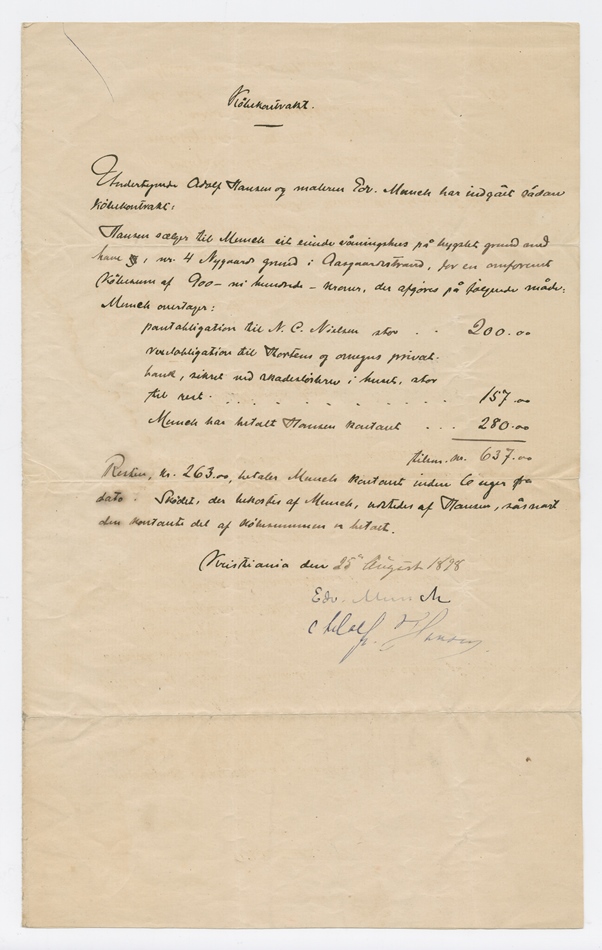 Köbekontrakt.
Undertegnede Adolf Hansen og maleren Edv. Munch har indgået sådan
köbekontrakt:
Hansen sælger til Munch sit eiende våningshus på bygslet grund med
have, nr. 4 Nygaards grund i Aasgaardstrand, for en omforenet
Köbesum af 900 - ni hundrede - kroner, der afgjöres på fölgende måde:
Munch overtager:
pantobligation til N. C. Nielsen stor . . 200.00
vexelobligation til Hortens og omegns privat-
bank, sikret ved skadeslösbrev i huset, stor
til rest . . . . . . . . 157.00
Munch har betalt Hansen kontant . . . 280.00
tilsm. kr. 637.00
Resten, kr. 263.00, betaler Munch kontant inden 6 uger fra
dato. Sködet, der bekostes af Munch, udstedes af Hansen, såsnart
den kontante del af köbesummen er betalt.
Kristiania den 25de August 1898
Edv. Munch
Adolf Hansen.